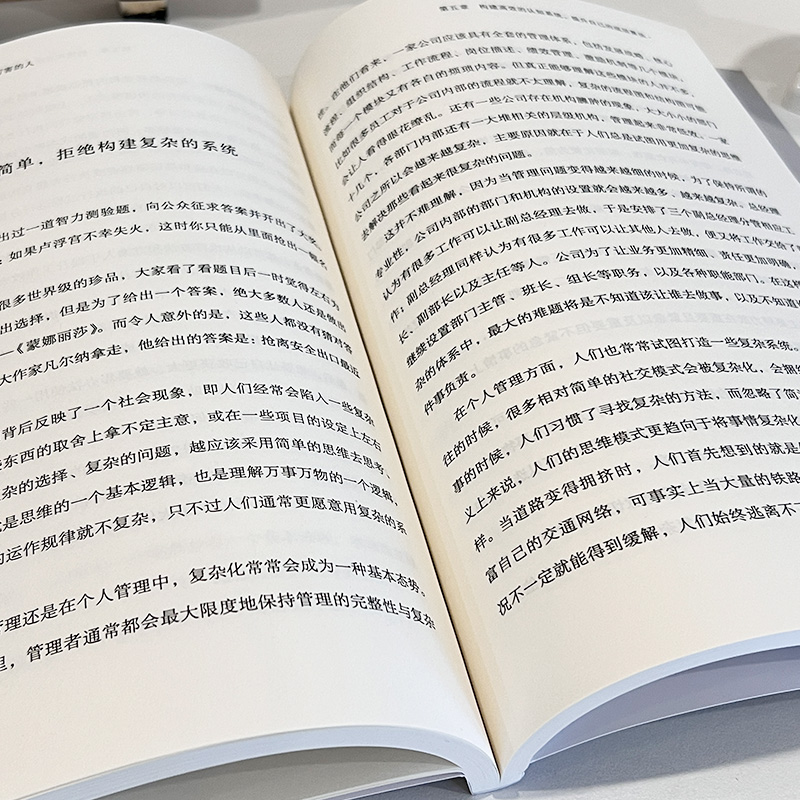 害的人
简单，拒绝构建复杂的系统
出过一道智力测验题，向公众征求答案并开出了大奖
：如果卢浮宫不幸失火，这时你只能从里面抢出一幅名
很多世界级的珍品，大家看了看题目后一时觉得左右为
出选择，但是为了给出一个答案，绝大多数人还是做出
—《蒙娜丽莎》。而令人意外的是，这些人都没有猜对答
大作家凡尔纳拿走，他给出的答案是：抢离安全出口最近
背后反映了一个社会现象，即人们经常会陷入一些复杂
些东西的取舍上拿不定主意，或在一些项目的设定上左右
杂的选择、复杂的问题，越应该采用简单的思维去思考、
就是思维的一个基本逻辑，也是理解万事万物的一个逻辑，
的运作规律就不复杂，只不过人们通常更愿意用复杂的系
管理还是在个人管理中，复杂化常常会成为一种基本态势。
里，管理者通常都会最大限度地保持管理的完整性与复杂
第五章 构建高效的认知系统，
性。在他们看来，一家公司应该具有全套的管理体系，包括发展战略、核心
流程、组织结构、工作流程、岗位描述、绩效管理、激励机制等几个模块，
而每一个模块又有各自的烦琐内容。但真正能够理解这些模块的人并不多，
比如很多员工对于公司内部的流程就不太理解，复杂的流程图和结构图可能
会让人看得眼花缭乱。还有一些公司存在机构臃肿的现象，大大小小的部门
十几个，各部门内部还有一大堆相关的层级机构，管理起来非常低效。一家
公司之所以会越来越复杂，主要原因就在于人们总是试图用更加复杂的思维
去解决那些看起来很复杂的问题。
这并不难理解，因为当管理问题变得越来越细的时候，为了保持所谓的
专业性，公司内部的部门和机构的设置就会越来越多、越来越复杂。总经理
认为有很多工作可以让副总经理去做，于是安排了三个副总经理分管相应工
作；副总经理同样认为有很多工作可以让其他人去做，便又将工作交给了部
长、副部长以及主任等人。公司为了让业务更加精细、责任更加明确，
继续设置部门主管、班长、组长等职务，以及各种职能部门。在这种
杂的体系中，最大的难题将是不知道该让谁去做事，以及不知道
件事负责。
在个人管理方面，人们也常常试图打造一些复杂系统。
往的时候，很多相对简单的社交模式会被复杂化，会捆绑
事的时候，人们习惯了寻找复杂的方法，而忽略了简
义上来说，人们的思维模式更趋向于将事情复杂化
样。当道路变得拥挤时，人们首先想到的就是
富自己的交通网络，可事实上当大量的铁路
况不一定就能得到缓解，人们始终逃离不了